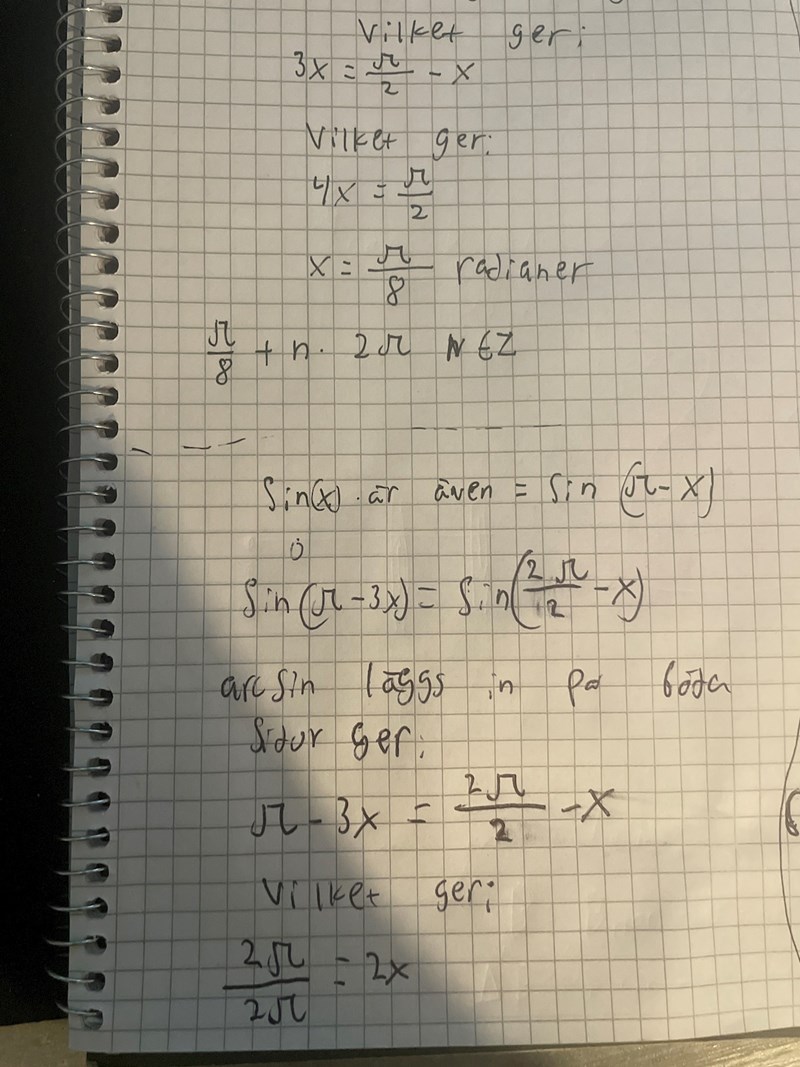 Vilket ger;
3x = π/2 - x
Vilket ger;
4x = π/2
x = π/8 radianer
π/8 + n · 2π N ∈ Z
Sin(x) är även = Sin (π - x)
Sin (π - 3x) = Sin (2π/2 - x)
arc Sin läggs in på båda
Sidor ger;
π - 3x = 2π/2 - x
Vilket ger;
2π/2π = 2x